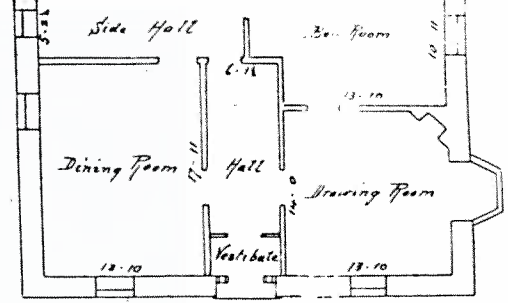 Side Hall
Room
10-11
6-11
13-10
Dining Room
17-11
Hall
14-0
Drawing Room
Vestibule
13-10
13-10